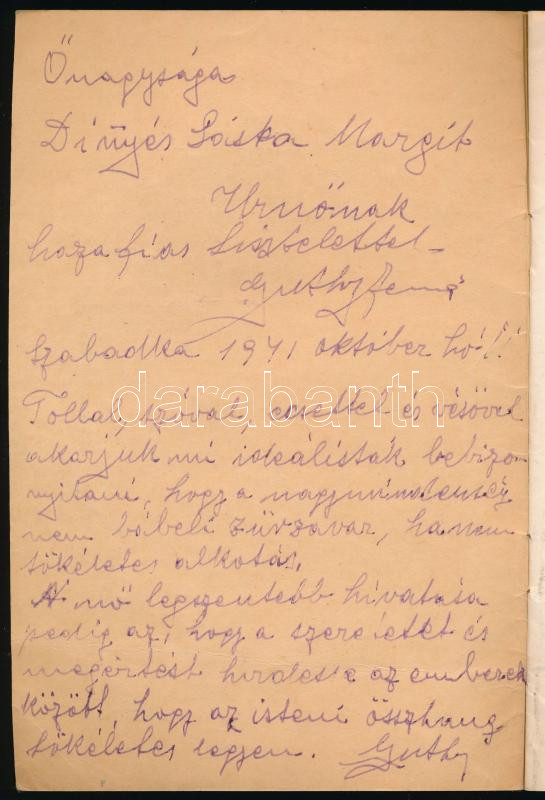 Őnagysága
Dinyés Láska Margit
Urnőnak
hazafias tisztelettel
Guthy Jenő
Szabadka 1941 október hó
darabanth
Tollal, szóval, ecsettel és vésővel
akarjuk mi ideálisták bebizo-
nyitani, hogy a nagymindenség
nem bábeli zürzavar, hanem
tökéletes alkotás.
A nő legszentebb hivatása
pedig az, hogy a szeretetet és
megértést hirdesse az emberek
között, hogy az isteni összhang
tökéletes legyen. Guthy